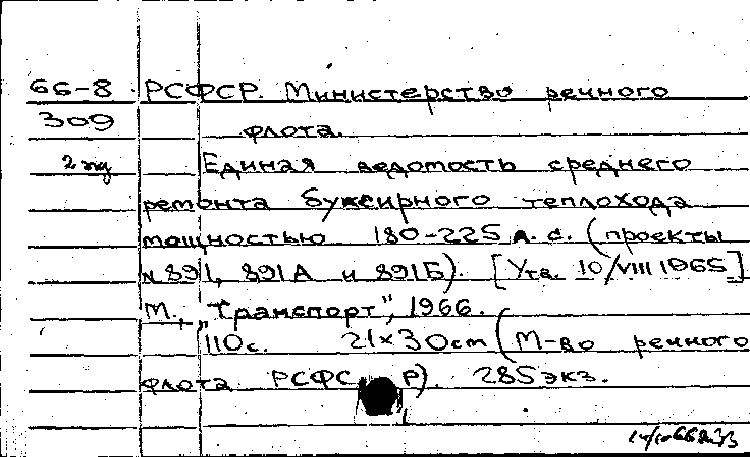 66-8 РСФСР. Министерство речного
309 флота.
2 Единая ведомость среднего
ремонта буксирного теплохода
мощностью 180-225 л.с. (проекты
N 891, 891А и 891Б). [Утв. 10/VIII 1965]
М., „Транспорт", 1966.
110с. 21×30cm (М-во речного
флота РСФСР). 285экз.